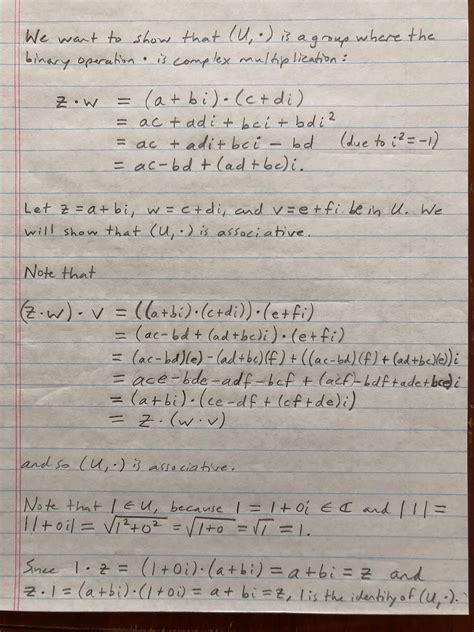 We want to show that (U,·) is a group where the
binary operation · is complex multiplication:
z·w = (a+bi)·(c+di)
= ac + adi + bci + bdi²
= ac + adi + bci − bd (due to i²=−1)
= ac−bd + (ad+bc)i.
Let z=a+bi, w=c+di, and v=e+fi be in U. We
will show that (U,·) is associative.
Note that
(z·w)·v = ((a+bi)·(c+di))·(e+fi)
= (ac−bd+(ad+bc)i)·(e+fi)
= (ac−bd)(e)−(ad+bc)(f)+((ac−bd)(f)+(ad+bc)(e))i
= ace−bde−adf−bcf + (acf−bdf+ade+bce)i
= (a+bi)·(ce−df+(cf+de)i)
= z·(w·v)
and so (U,·) is associative.
Note that 1∈U, because 1=1+0i ∈ ℂ and |1|=
|1+0i|=√1²+0²=√1+0=√1=1.
Since 1·z = (1+0i)·(a+bi)=a+bi=z and
z·1=(a+bi)·(1+0i)=a+bi=z, 1 is the identity of (U,·).